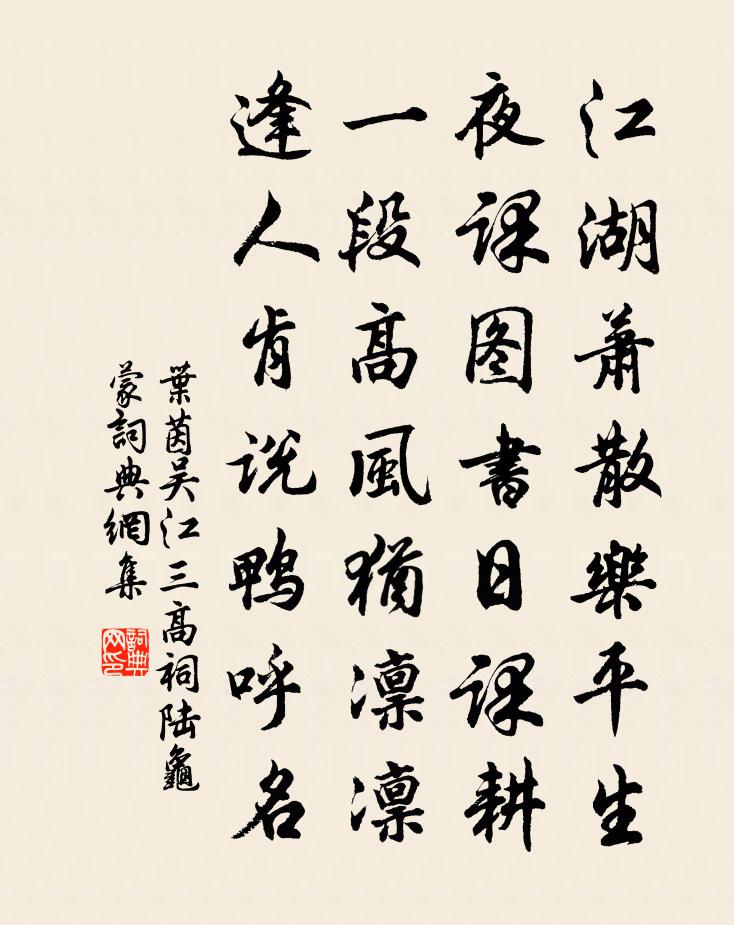 江湖萧散樂平生
夜课图書日课耕
一段高風猶凛凛
逢人肯说鸭呼名
葉茵吴江三高祠陆龜
蒙詞典網集
詞典网印